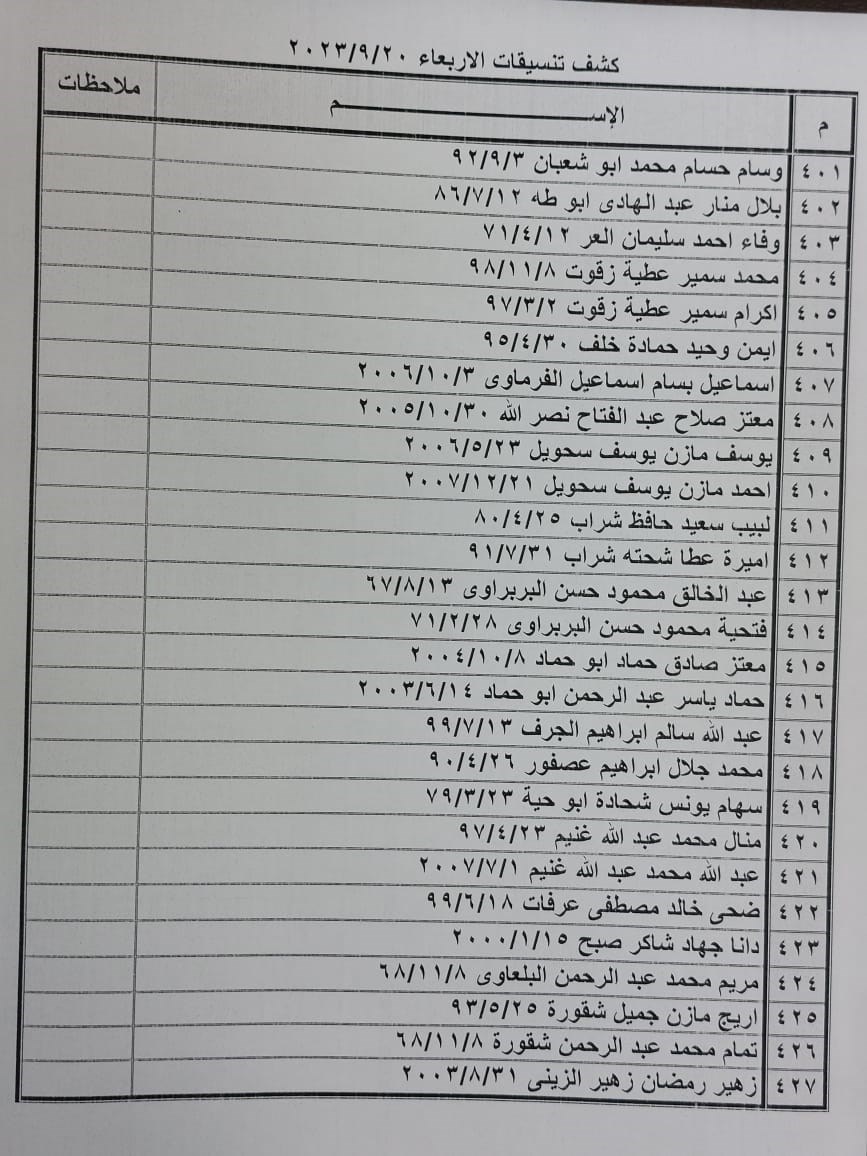 كشف تنسيقات الاربعاء ٢٠٢٣/٩/٢٠
م الإسـم ملاحظات
٤٠١ وسام حسام محمد ابو شعبان ٩٢/٩/٣
٤٠٢ بلال منار عبد الهادى ابو طه ٨٦/٧/١٢
٤٠٣ وفاء احمد سليمان العر ٧١/٤/١٢
٤٠٤ محمد سمير عطية زقوت ٩٨/١١/٨
٤٠٥ اكرام سمير عطية زقوت ٩٧/٣/٢
٤٠٦ ايمن وحيد حمادة خلف ٩٥/٤/٣٠
٤٠٧ اسماعيل بسام اسماعيل الفرماوى ٢٠٠٦/١٠/٣
٤٠٨ معتز صلاح عبد الفتاح نصر الله ٢٠٠٥/١٠/٣٠
٤٠٩ يوسف مازن يوسف سحويل ٢٠٠٦/٥/٢٣
٤١٠ احمد مازن يوسف سحويل ٢٠٠٧/١٢/٢١
٤١١ لبيب سعيد حافظ شراب ٨٠/٤/٢٥
٤١٢ اميرة عطا شحته شراب ٩١/٧/٣١
٤١٣ عبد الخالق محمود حسن البربراوى ٦٧/٨/١٣
٤١٤ فتحية محمود حسن البربراوى ٧١/٢/٢٨
٤١٥ معتز صادق حماد ابو حماد ٢٠٠٤/١٠/٨
٤١٦ حماد ياسر عبد الرحمن ابو حماد ٢٠٠٣/٦/١٤
٤١٧ عبد الله سالم ابراهيم الجرف ٩٩/٧/١٣
٤١٨ محمد جلال ابراهيم عصفور ٩٠/٤/٢٦
٤١٩ سهام يونس شحادة ابو حية ٧٩/٣/٢٣
٤٢٠ منال محمد عبد الله غنيم ٩٧/٤/٢٣
٤٢١ عبد الله محمد عبد الله غنيم ٢٠٠٧/٧/١
٤٢٢ ضحى خالد مصطفى عرفات ٩٩/٦/١٨
٤٢٣ دانا جهاد شاكر صبح ٢٠٠٠/١/١٥
٤٢٤ مريم محمد عبد الرحمن البلعاوى ٦٨/١١/٨
٤٢٥ اريج مازن جميل شقورة ٩٣/٥/٢٥
٤٢٦ تمام محمد عبد الرحمن شقورة ٦٨/١١/٨
٤٢٧ زهير رمضان زهير الزينى ٢٠٠٣/٨/٣١